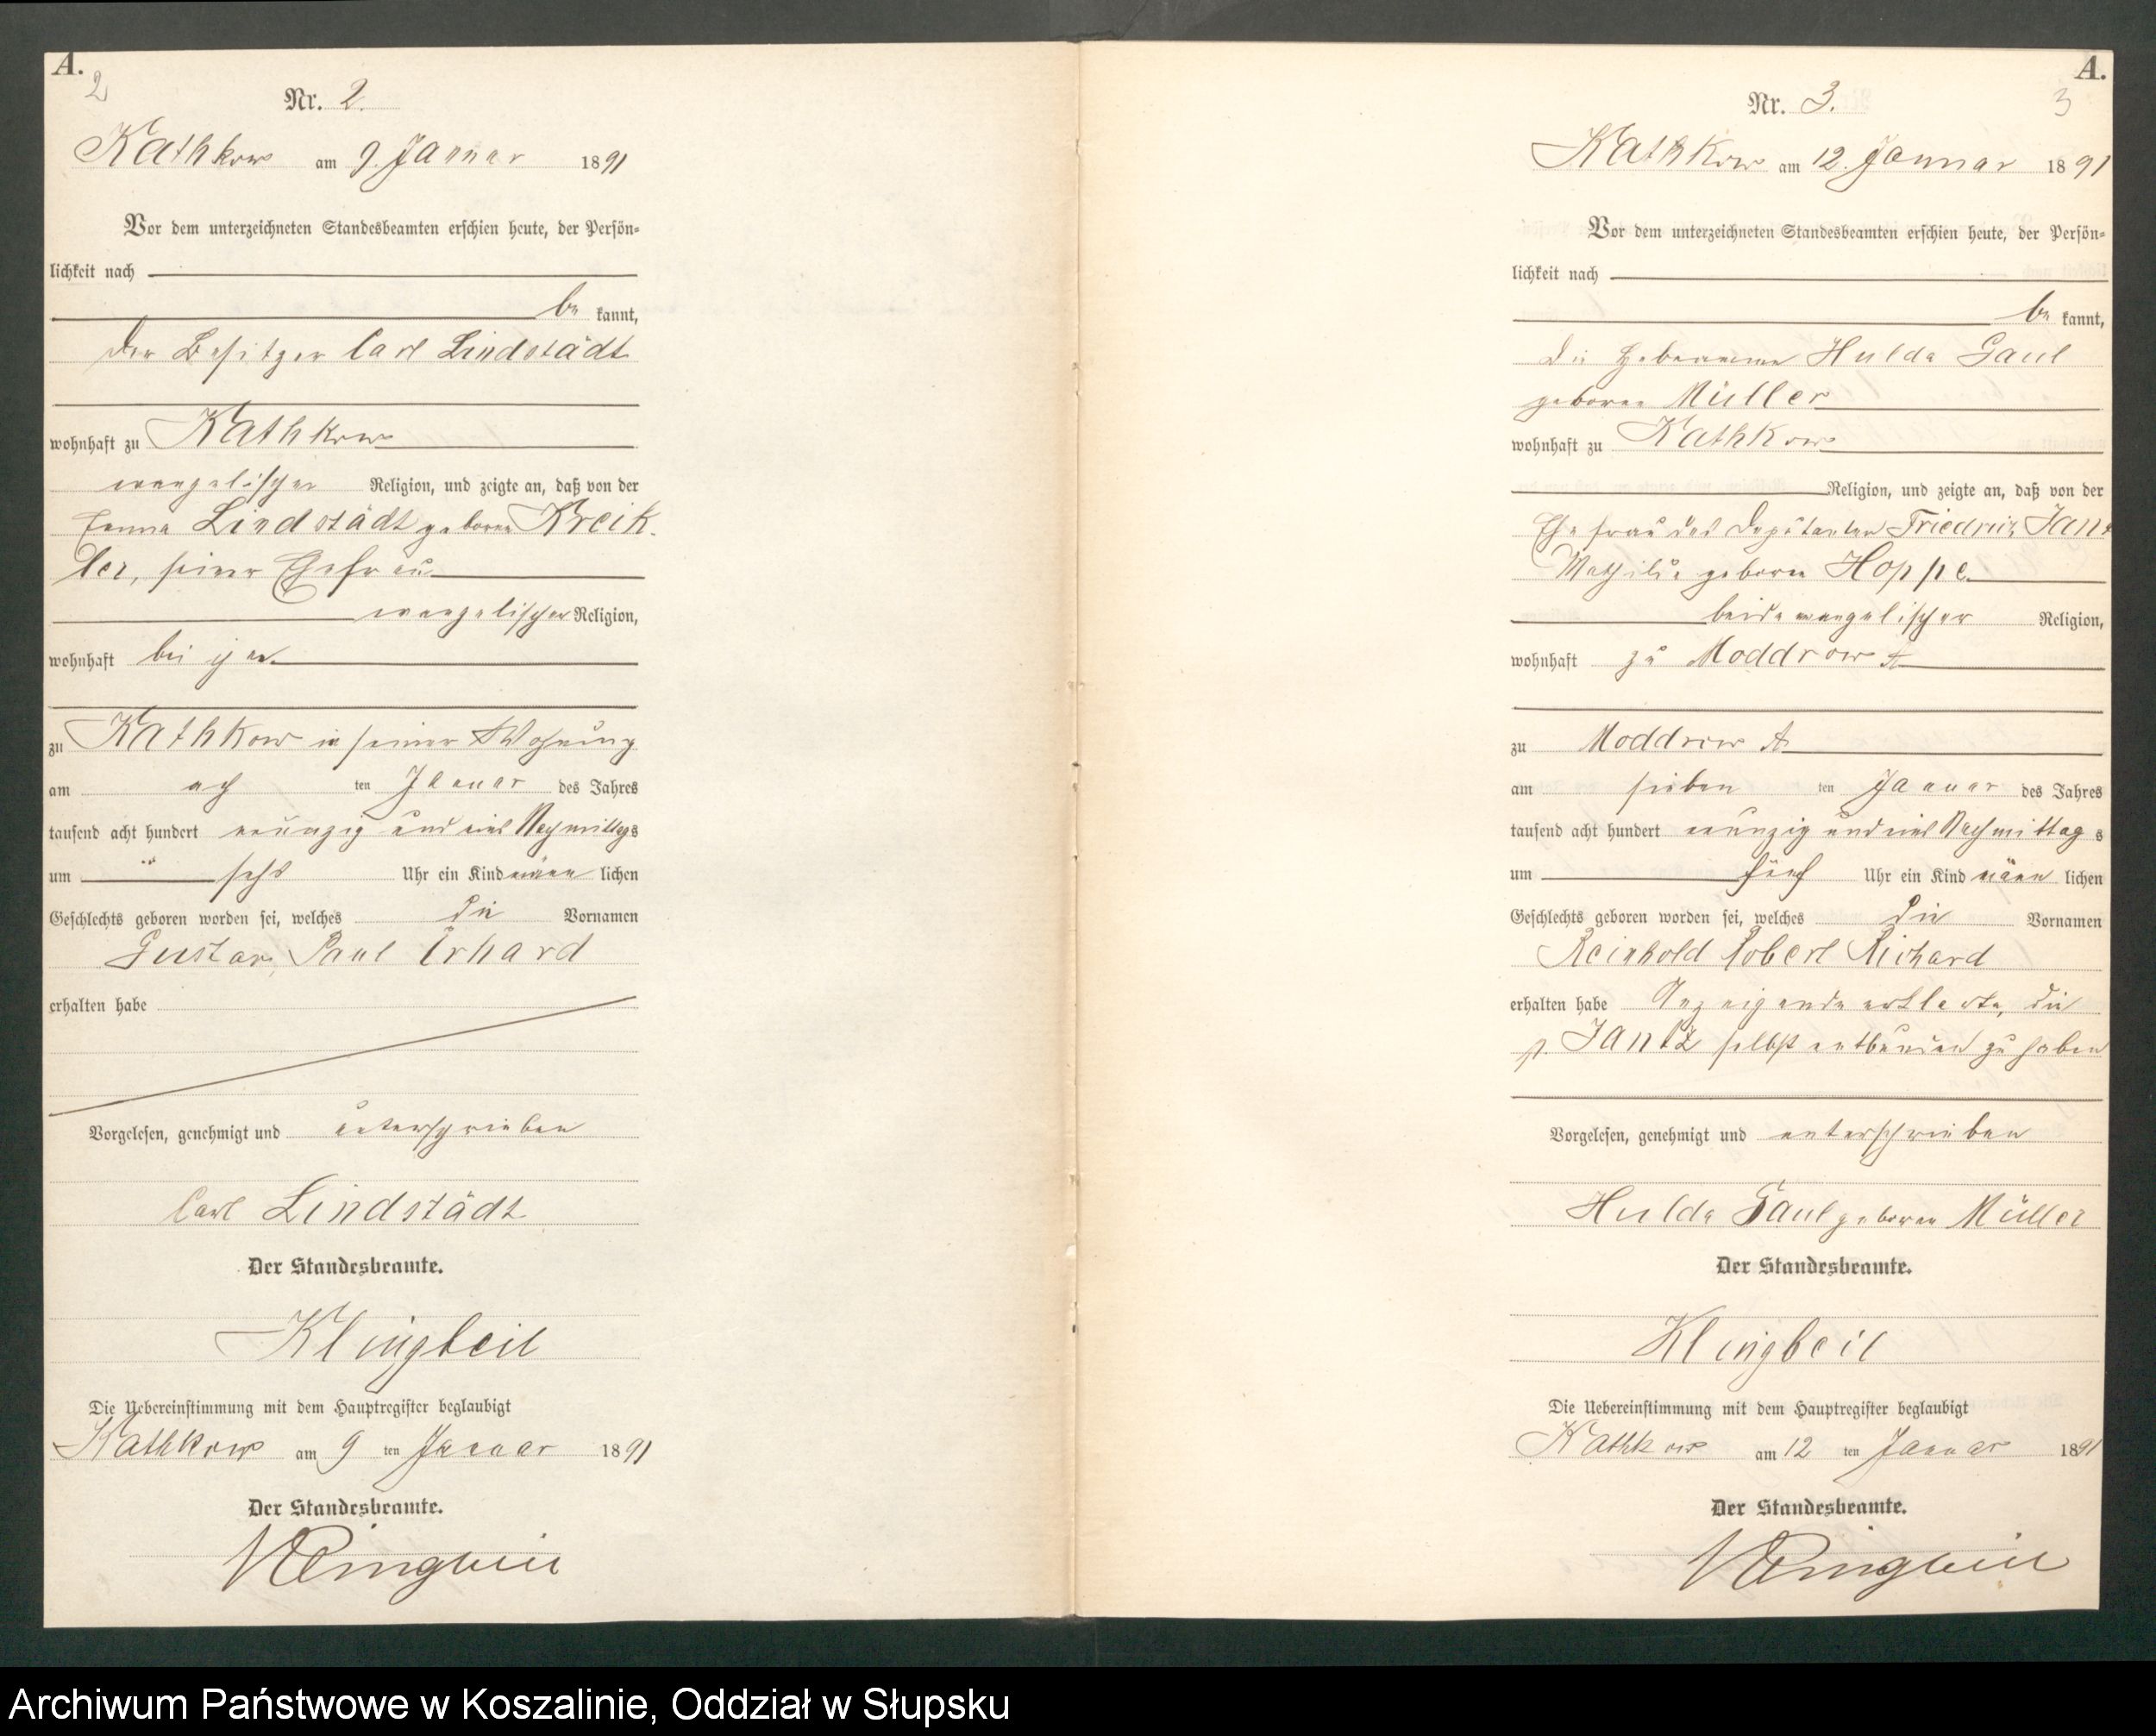 A.
2
Nr. 2.
Kathkow am 9. Januar 1891
Vor dem unterzeichneten Standesbeamten erschien heute, der Persön-
lichkeit nach
be kannt,
der Besitzer Carl Lindstädt
wohnhaft zu Kathkow
evangelischer Religion, und zeigte an, daß von der
Lindstädt geborene Kreik-
ler, seiner Ehefrau
evangelischer Religion,
wohnhaft bei ihm
zu Kathkow in seiner Wohnung
am ach ten Januar des Jahres
tausend acht hundert neunzig und eins Nachmittags
um sechs Uhr ein Kind männ lichen
Geschlechts geboren worden sei, welches die Vornamen
Gustav Paul Erhard
erhalten habe
Vorgelesen, genehmigt und unterschrieben
Carl Lindstädt
Der Standesbeamte.
Klingbeil
Die Uebereinstimmung mit dem Hauptregister beglaubigt
Kathkow am 9 ten Januar 1891
Der Standesbeamte.
Klingbeil
A.
3
Nr. 3.
Kathkow am 12. Januar 1891
Vor dem unterzeichneten Standesbeamten erschien heute, der Persön-
lichkeit nach
be kannt,
die Hebeamme Hulda Gaul
geborene Müller
wohnhaft zu Kathkow
Religion, und zeigte an, daß von der
Ehefrau des Deputanten Friedrich Jantz
Mathilde geborene Hoppe
beide evangelischer Religion,
wohnhaft zu Moddrow A
zu Moddrow A
am sieben ten Januar des Jahres
tausend acht hundert neunzig und eins Nachmittag s
um fünf Uhr ein Kind männ lichen
Geschlechts geboren worden sei, welches die Vornamen
Reinhold Robert Richard
erhalten habe Anzeigende erklärte, die
p. Jantz selbst entbunden zu haben
Vorgelesen, genehmigt und unterschrieben
Hulda Gaul geborene Müller
Der Standesbeamte.
Klingbeil
Die Uebereinstimmung mit dem Hauptregister beglaubigt
Kathkow am 12 ten Januar 1891
Der Standesbeamte.
Klingbeil
Archiwum Państwowe w Koszalinie, Oddział w Słupsku